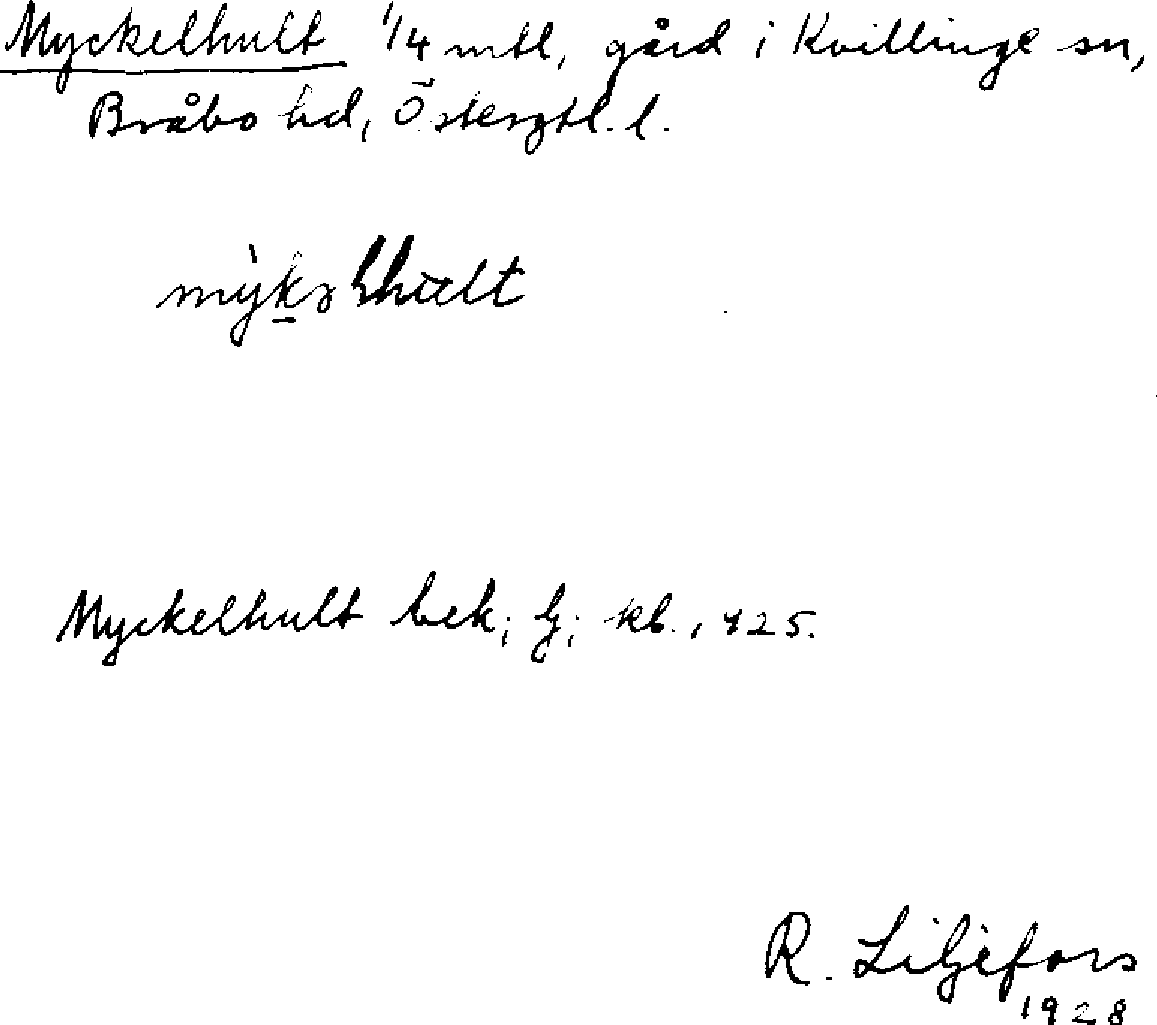 Myckelhult 1/4 mtl, gård i Kvillinge sn,
Bråbo hd, Östergtl. l.
Myckelhult bek; lj; kb., 425.
R. Liljefors
1928